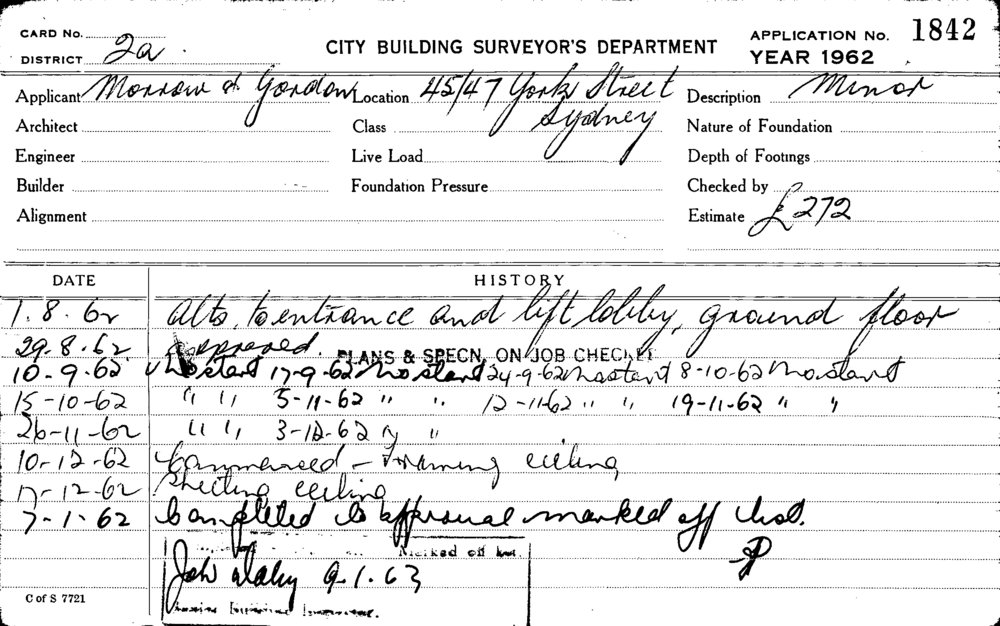 CARD No.
DISTRICT 2a
CITY BUILDING SURVEYOR'S DEPARTMENT
APPLICATION No. 1842
YEAR 1962
Applicant Morrow & Gordon Location 45/47 York Street Description Minor
Architect Class Sydney Nature of Foundation
Engineer Live Load Depth of Footings
Builder Foundation Pressure Checked by
Alignment Estimate £272
DATE HISTORY
1.8.62 Alts. to entrance and lift lobby, ground floor
29.8.62 Approved. PLANS & SPECN. ON JOB CHECKED
10-9-62 No start 17-9-62 No start 24-9-62 No start 8-10-62 No start
15-10-62 " " 5-11-62 " " 12-11-62 " " 19-11-62 " "
26-11-62 " " 3-12-62 " "
10-12-62 Commenced - Framing ceiling
17-12-62 Sheeting ceiling
7-1-62 Completed to approval marked off list.
Marked off
9-1-63
C of S 7721